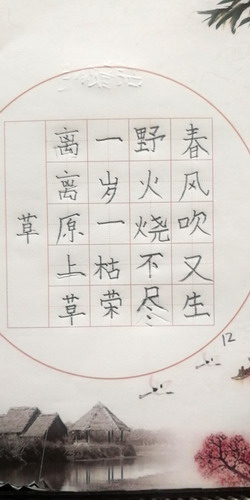 草
离离原上草
一岁一枯荣
野火烧不尽
春风吹又生
12